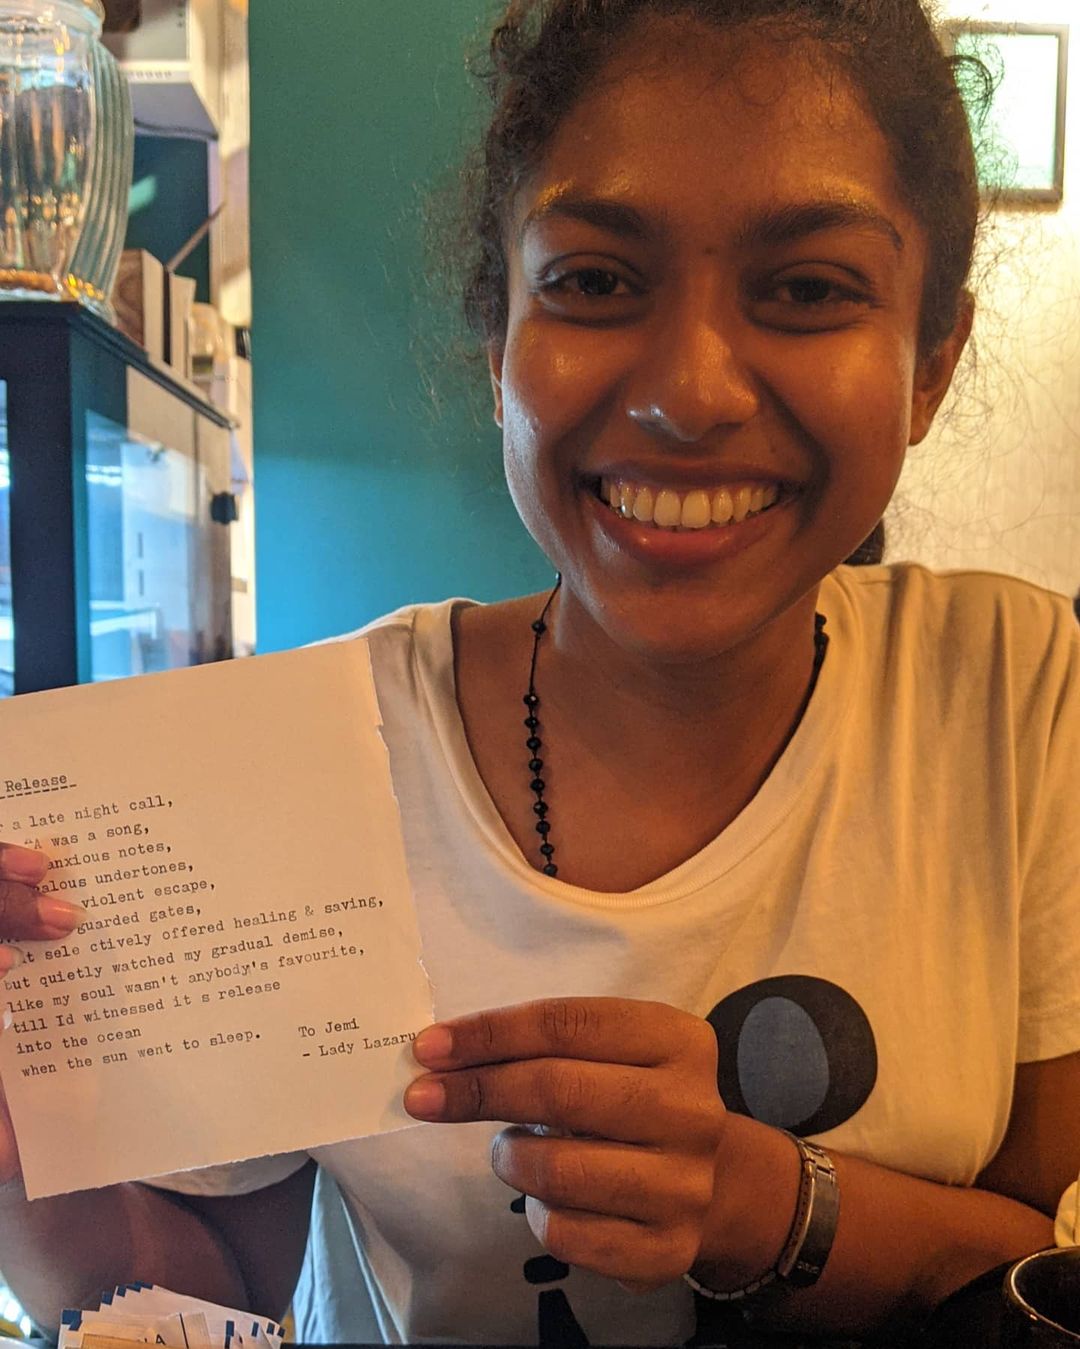 Release
a late night call,
was a song,
anxious notes,
undertones,
violent escape,
guarded gates,
sele ctively offered healing & saving,
but quietly watched my gradual demise,
like my soul wasn't anybody's favourite,
till Id witnessed it s release
into the ocean
when the sun went to sleep.
To Jemi
- Lady Lazaru